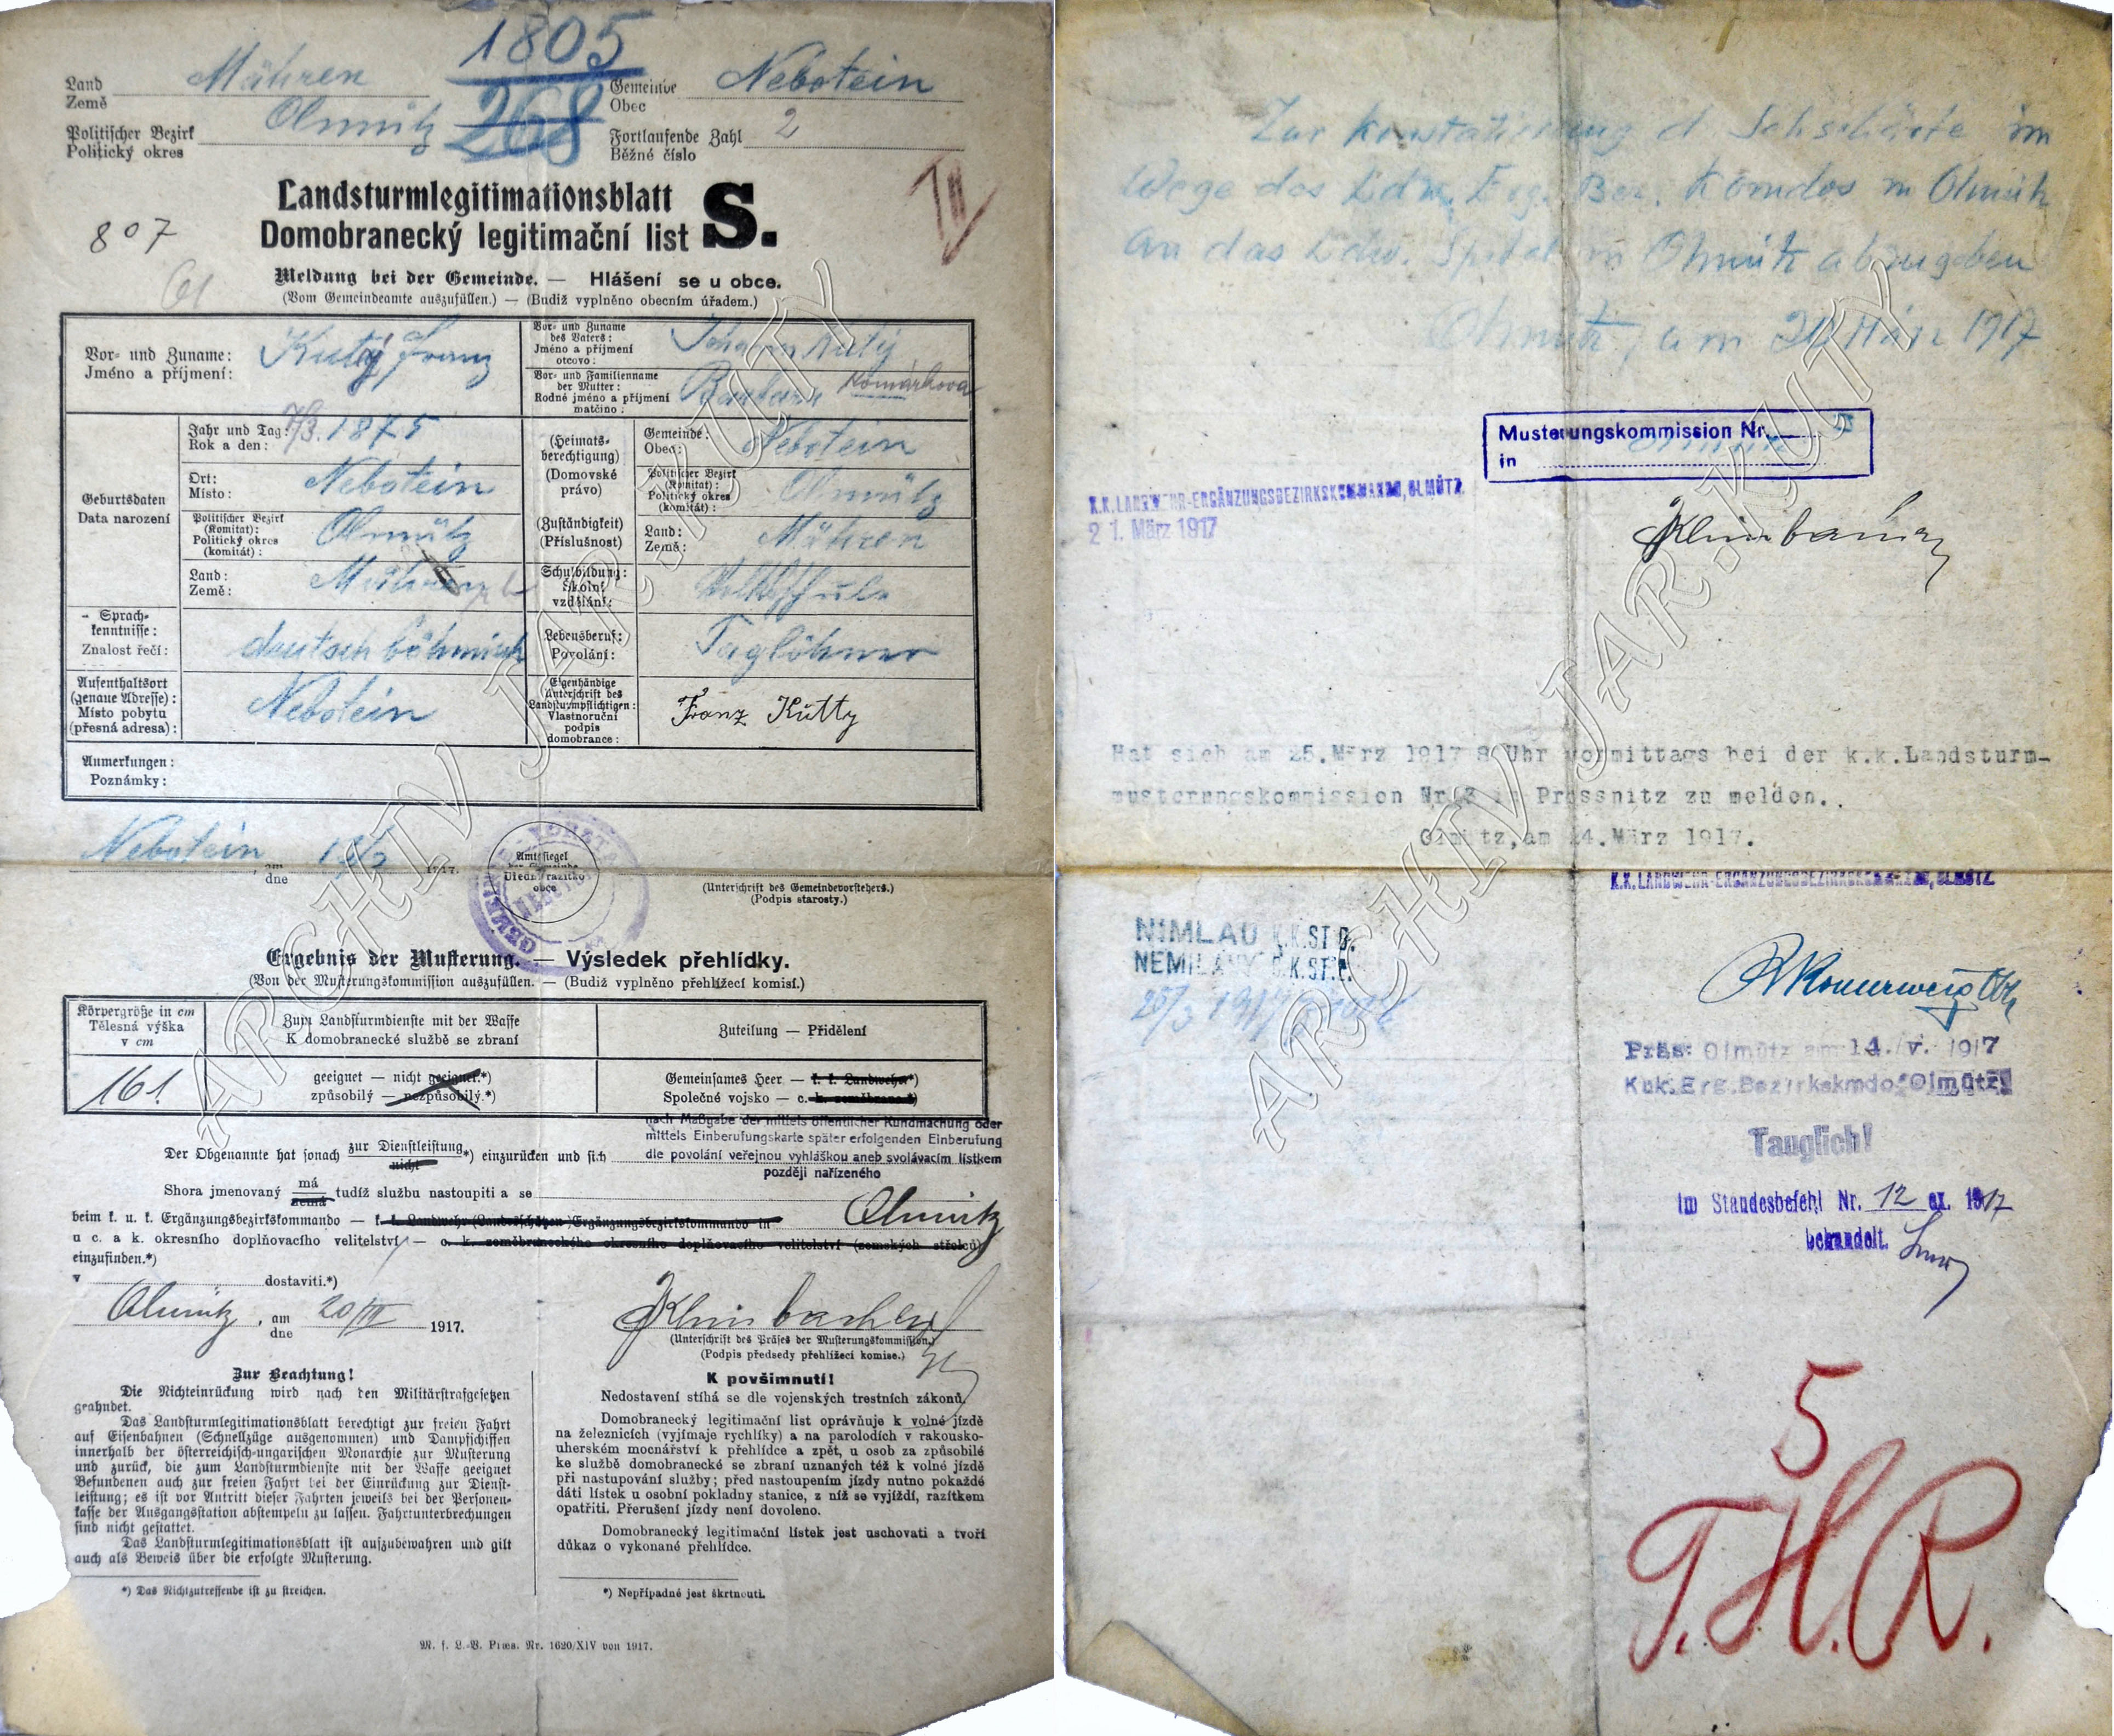 1805
Land Mähren
Země
268
Gemeinde Nebotein
Obec
Politischer Bezirk Olmütz
Politický okres
Fortlaufende Zahl 2
Běžné číslo
Landsturmlegitimationsblatt S.
Domobranecký legitimační list
807
Meldung bei der Gemeinde. — Hlášení se u obce.
(Vom Gemeindeamte auszufüllen.) — (Budiž vyplněno obecním úřadem.)
Vor- und Zuname: Kutý Franz
Jméno a příjmení:
Vor- und Zuname des Vaters: Johann Kutý
Jméno a příjmení otcovo:
Vor- und Familienname der Mutter: Barbara Komárkova
Rodné jméno a příjmení matčino:
Geburtsdaten
Data narození
Jahr und Tag: 7/3. 1875
Rok a den:
Ort: Nebotein
Místo:
Politischer Bezirk (Komitat): Olmütz
Politický okres (komitát):
Land: Mähren
Země:
(Heimats-berechtigung)
(Domovské právo)
(Zuständigkeit)
(Příslušnost)
Gemeinde: Nebotein
Obec:
Politischer Bezirk (Komitat): Olmütz
Politický okres (komitát):
Land: Mähren
Země:
Sprach-kenntnisse: deutsch böhmisch
Znalost řečí:
Schulbildung: Volksschule
Školní vzdělání:
Lebensberuf: Taglöhner
Povolání:
Aufenthaltsort (genaue Adresse): Nebotein
Místo pobytu (přesná adresa):
Eigenhändige Unterschrift des Landsturmpflichtigen: Franz Kutty
Vlastnoruční podpis domobrance:
Anmerkungen:
Poznámky:
Nebotein, am 1917.
dne
Amtssiegel der Gemeinde
Úřední razítko obce
(Unterschrift des Gemeindevorstehers.)
(Podpis starosty.)
Ergebnis der Musterung. — Výsledek přehlídky.
(Von der Musterungskommission auszufüllen. — (Budiž vyplněno přehlížecí komisí.)
Körpergröße in cm
Tělesná výška v cm
161
Zum Landsturmdienste mit der Waffe
K domobranecké službě se zbraní
Zuteilung — Přidělení
geeignet — nicht geeignet.*)
způsobilý — nezpůsobilý.*)
Gemeinsames Heer — k. k. Landwehr*)
Společné vojsko — c. k. zeměbrana*)
nach Maßgabe der mittels öffentlicher Kundmachung oder
mittels Einberufungskarte später erfolgenden Einberufung
dle povolání veřejnou vyhláškou aneb svolávacím lístkem
později nařízeného
Der Obgenannte hat sonach zur Dienstleistung nicht *) einzurücken und sich
Shora jmenovaný má nemá tudíž službu nastoupiti a se
beim k. u. k. Ergänzungsbezirkskommando — k. k. Landwehr-(Landesschützen-)Ergänzungsbezirkskommando in Olmütz
u c. a k. okresního doplňovacího velitelství — c. k. zeměbraneckého okresního doplňovacího velitelství (zemských střelců)
einzufinden.*)
v dostaviti.*)
Olmütz, am 20/III 1917.
dne
(Unterschrift des Präses der Musterungskommission.)
(Podpis předsedy přehlížecí komise.)
Zur Beachtung!
Die Nichteinrückung wird nach den Militärstrafgesetzen
geahndet.
Das Landsturmlegitimationsblatt berechtigt zur freien Fahrt
auf Eisenbahnen (Schnellzüge ausgenommen) und Dampfschiffen
innerhalb der österreichisch-ungarischen Monarchie zur Musterung
und zurück, die zum Landsturmdienste mit der Waffe geeignet
Befundenen auch zur freien Fahrt bei der Einrückung zur Dienst-
leistung; es ist vor Antritt dieser Fahrten jeweils bei der Personen-
kasse der Ausgangsstation abstempeln zu lassen. Fahrtunterbrechungen
sind nicht gestattet.
Das Landsturmlegitimationsblatt ist aufzubewahren und gilt
auch als Beweis über die erfolgte Musterung.
*) Das Nichtzutreffende ist zu streichen.
K povšimnutí!
Nedostavení stíhá se dle vojenských trestních zákonů.
Domobranecký legitimační list oprávňuje k volné jízdě
na železnicích (vyjímaje rychlíky) a na parolodích v rakousko-
uherském mocnářství k přehlídce a zpět, u osob za způsobilé
ke službě domobranecké se zbraní uznaných též k volné jízdě
při nastupování služby; před nastoupením jízdy nutno pokaždé
dáti lístek u osobní pokladny stanice, z níž se vyjíždí, razítkem
opatřiti. Přerušení jízdy není dovoleno.
Domobranecký legitimační lístek jest uschovati a tvoří
důkaz o vykonané přehlídce.
*) Nepřípadné jest škrtnouti.
M. f. L.-V. Præs. Nr. 1620/XIV von 1917.
Zur Konstatierung d. Sehschärfe im
Wege des Ldw. Erg. Bez. Komdos in Olmütz
an das Ldw. Spital in Olmütz abzugeben
Olmütz, am 21 März 1917
Musterungskommission Nr.
in Olmütz
K.K. LANDWEHR-ERGÄNZUNGSBEZIRKSKOMMANDO, OLMÜTZ
21. März 1917
Hat sich am 25.März 1917 8 Uhr vormittags bei der k.k.Landsturm-
musterungskommission Nr.3 in Prossnitz zu melden..
Olmütz,am 24.März 1917.
K.K. LANDWEHR-ERGÄNZUNGSBEZIRKSKOMMANDO, OLMÜTZ
NIMLAU K.K.ST.B.
NEMILANY C.K.ST.D.
Präs: Olmütz am 14. V. 1917
KuK.Erg.Bezirkskmdo. Olmütz
Tauglich!
Im Standesbefehl Nr. 12 ex. 1917
behandelt.
5
T.H.R.
ARCHIV JAR. KUTÝ
ARCHIV JAR. KUTÝ